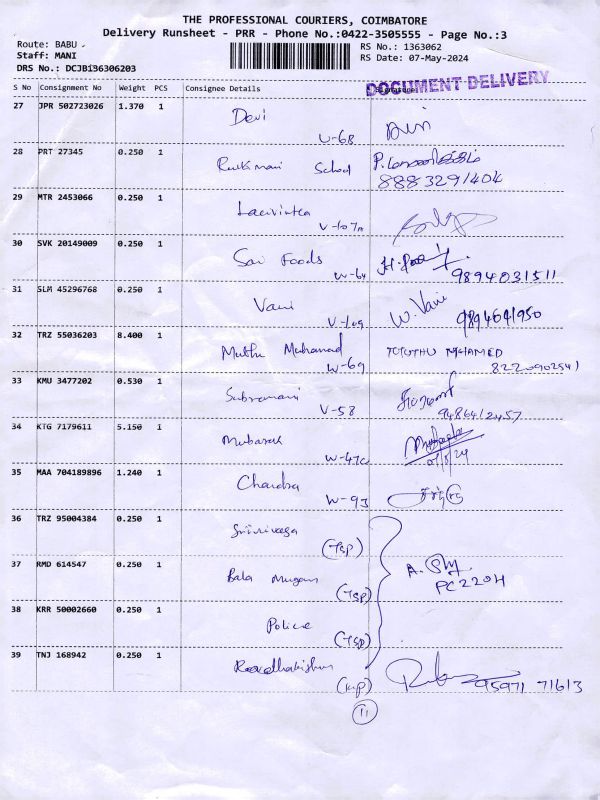 THE PROFESSIONAL COURIERS, COIMBATORE
Delivery Runsheet - PRR - Phone No.:0422-3505555 - Page No.:3
Route: BABU
Staff: MANI
DRS No.: DCJB136306203
RS No.: 1363062
RS Date: 07-May-2024
DOCUMENT DELIVERY
S No Consignment No Weight PCS Consignee Details Signature
27 JPR 502723026 1.370 1 Devi U-68
28 PRT 27345 0.250 1 Rukmani School
8883291404
29 MTR 2453066 0.250 1
30 SVK 20149009 0.250 1 Sai Foods W-64
9894031511
31 SLM 45296768 0.250 1 Vani V-109 W. Vani
989461950
32 TRZ 55036203 8.400 1 Muthu Mohamad W-69 MOHAMED
8220902541
33 KMU 3477202 0.530 1 Subramani V-58
9486412457
34 KTG 7179611 5.150 1 Mubarak W-47C
07/5/24
35 MAA 704189896 1.240 1 Chandra W-93
36 TRZ 95004384 0.250 1 Srinivasa (TSP)
37 RMD 614547 0.250 1 Bala Mugan (TSP)
PC2204
38 KRR 50002660 0.250 1 Police (TSP)
39 TNJ 168942 0.250 1 Raadhakishnan
95971 71613
11